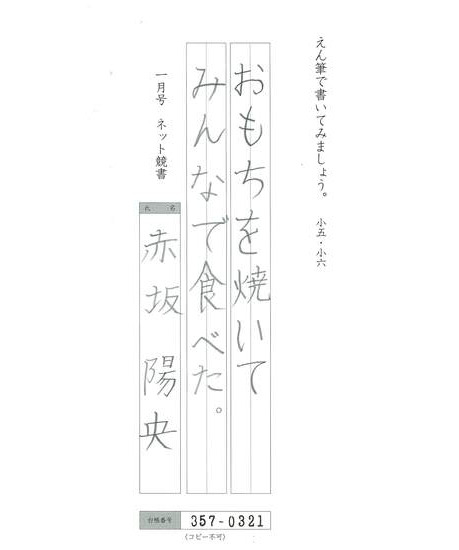 えん筆で書いてみましょう。 小五・小六
おもちを焼いて
みんなで食べた。
一月号 ネット競書
氏名
赤坂 陽央
台帳番号 357-0321
(コピー不可)